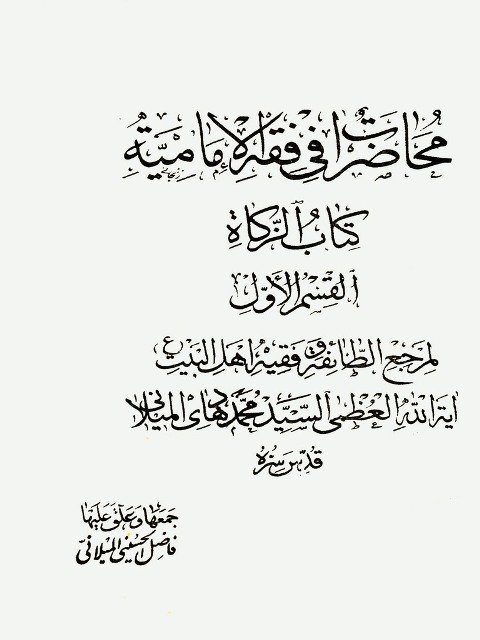 محاضرات في فقه الإمامية
كتاب الزكاة
القسم الأول
لمرجع الطائفة وفقيه اهل البيت ع
اية الله العظمى السيد محمد هادى الميلانى
قدس سره
جمعها وعلق عليها
فاضل الحسيني الميلاني